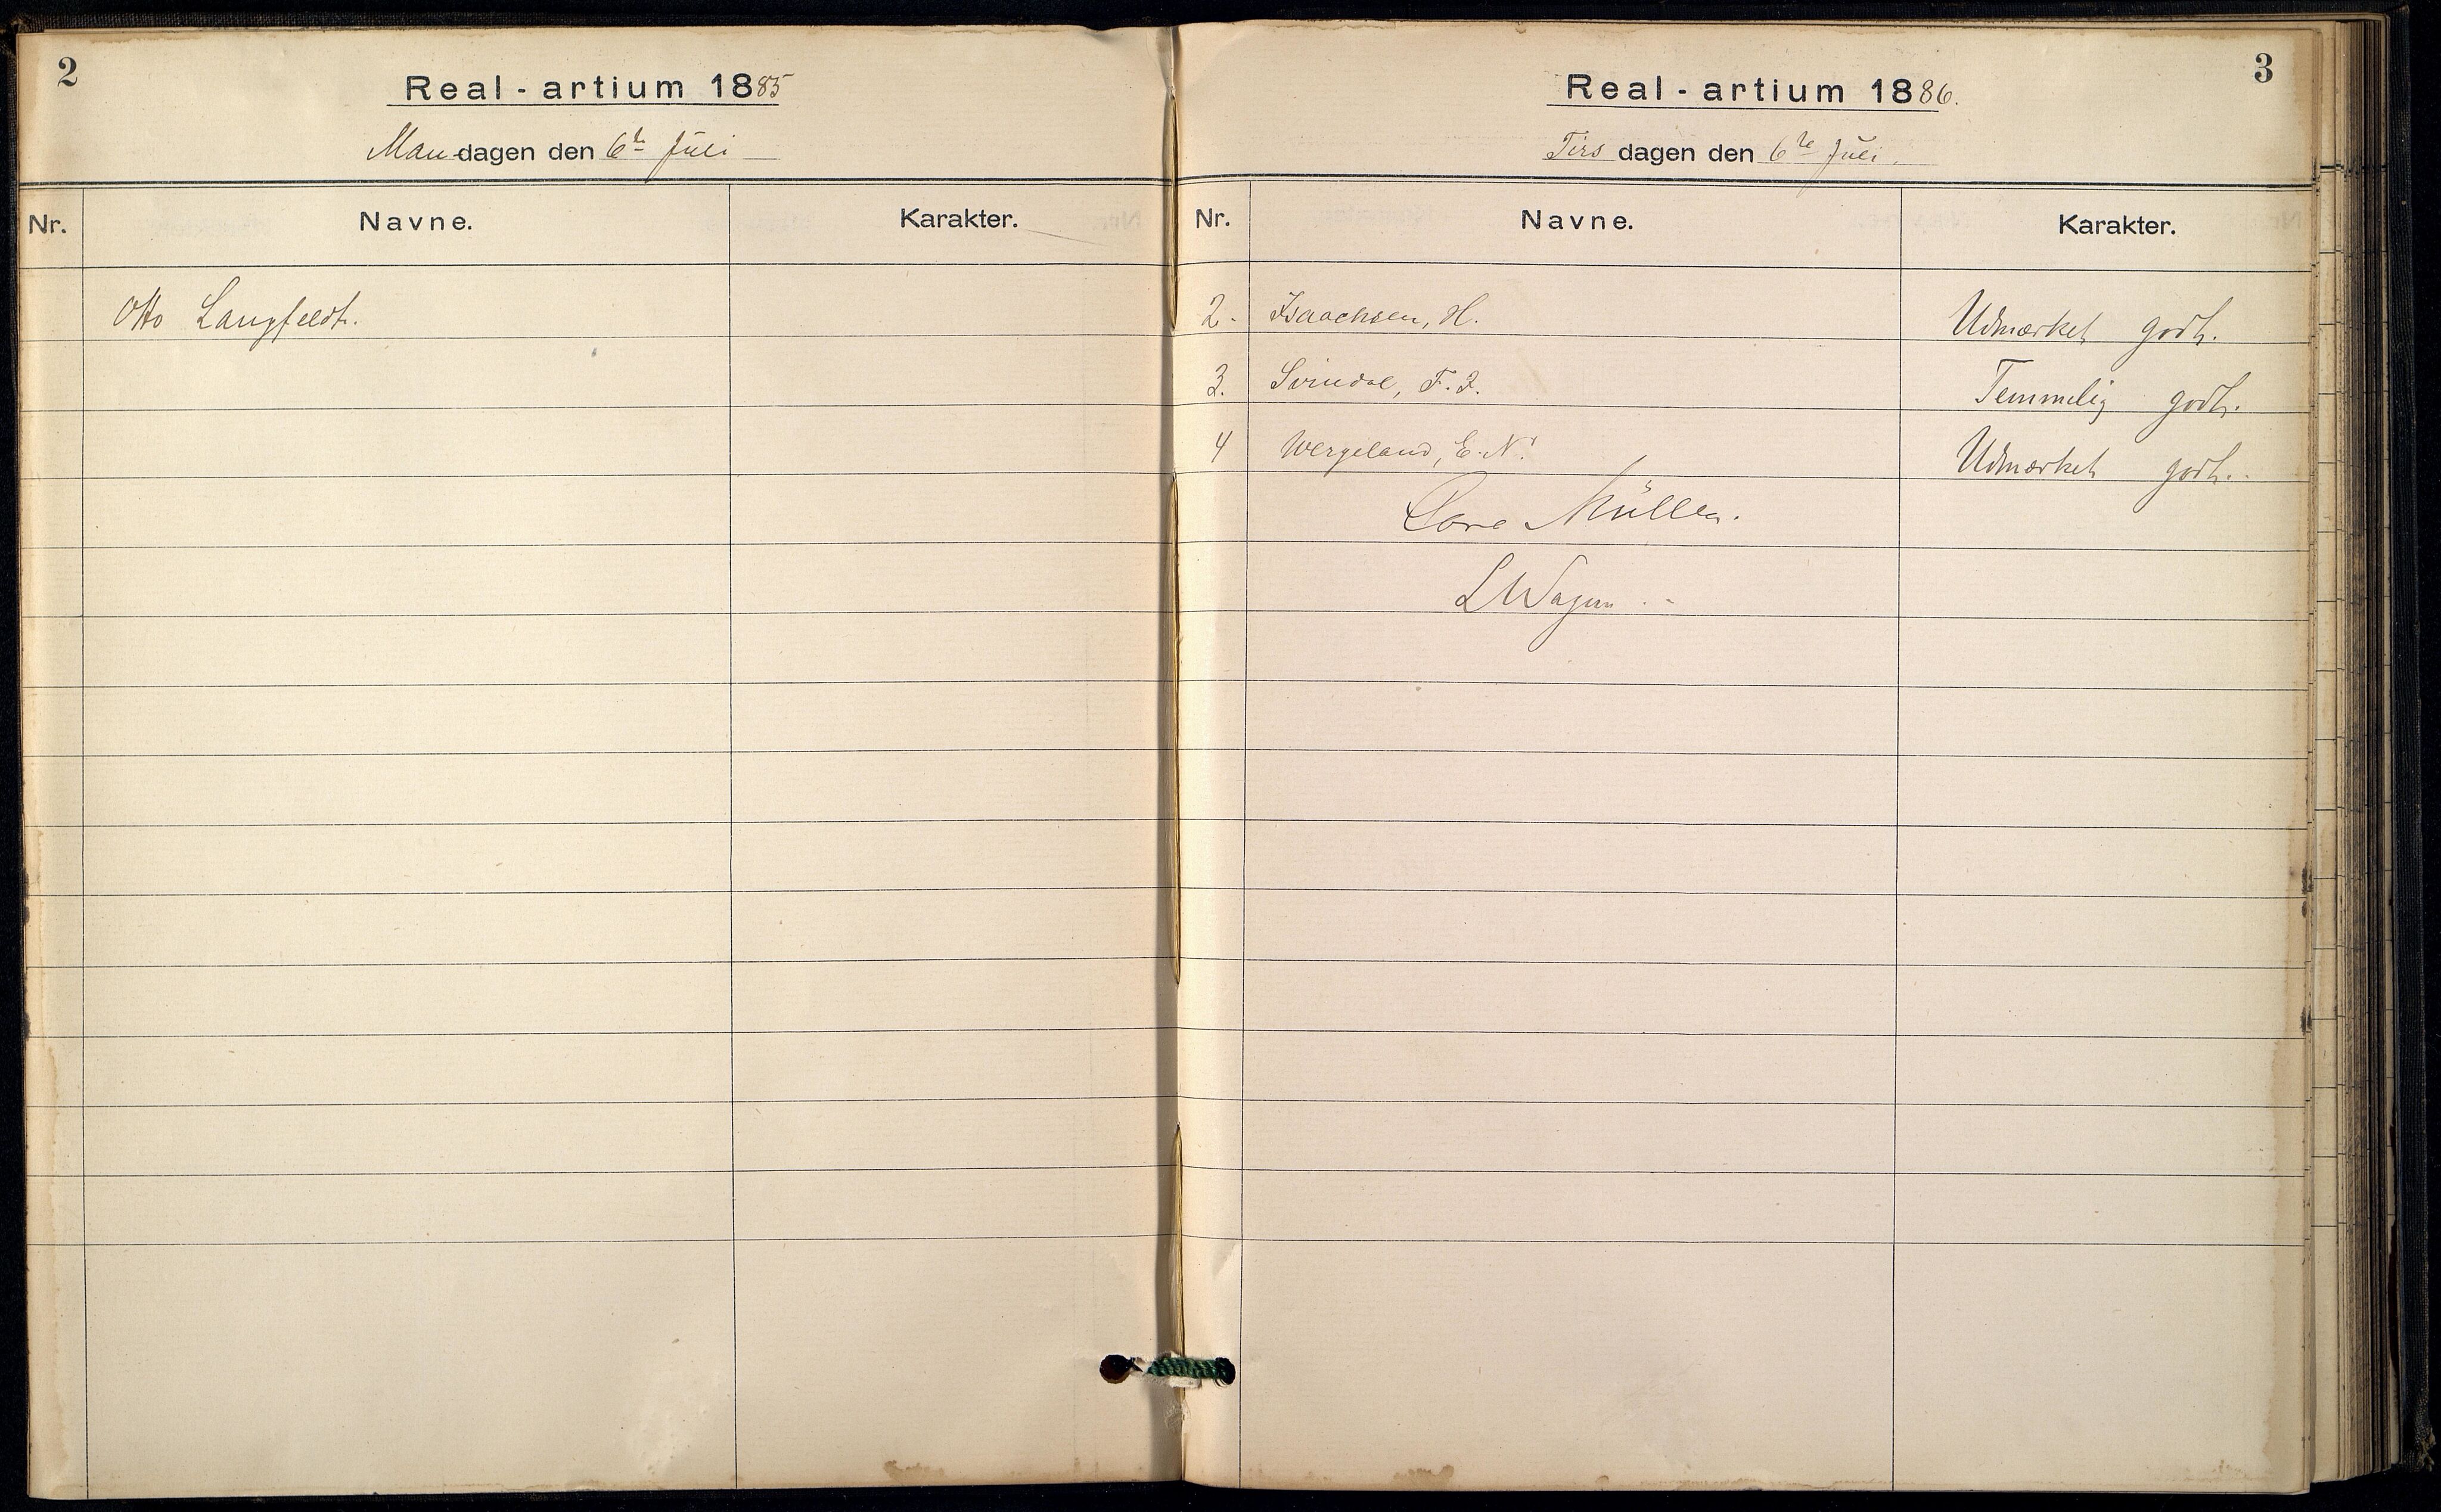 2
Real-artium 1885
Mandagen den 6te Juli
Nr. Navne. Karakter.
Otto Langfeldt.
3
Real-artium 1886.
Tirsdagen den 6te Juli.
Nr. Navne. Karakter.
2. Isaachsen, H. Udmærket godt.
3. Svindal, F. J. Temmelig godt.
4 Wergeland, E. N. Udmærket godt.
Müller.